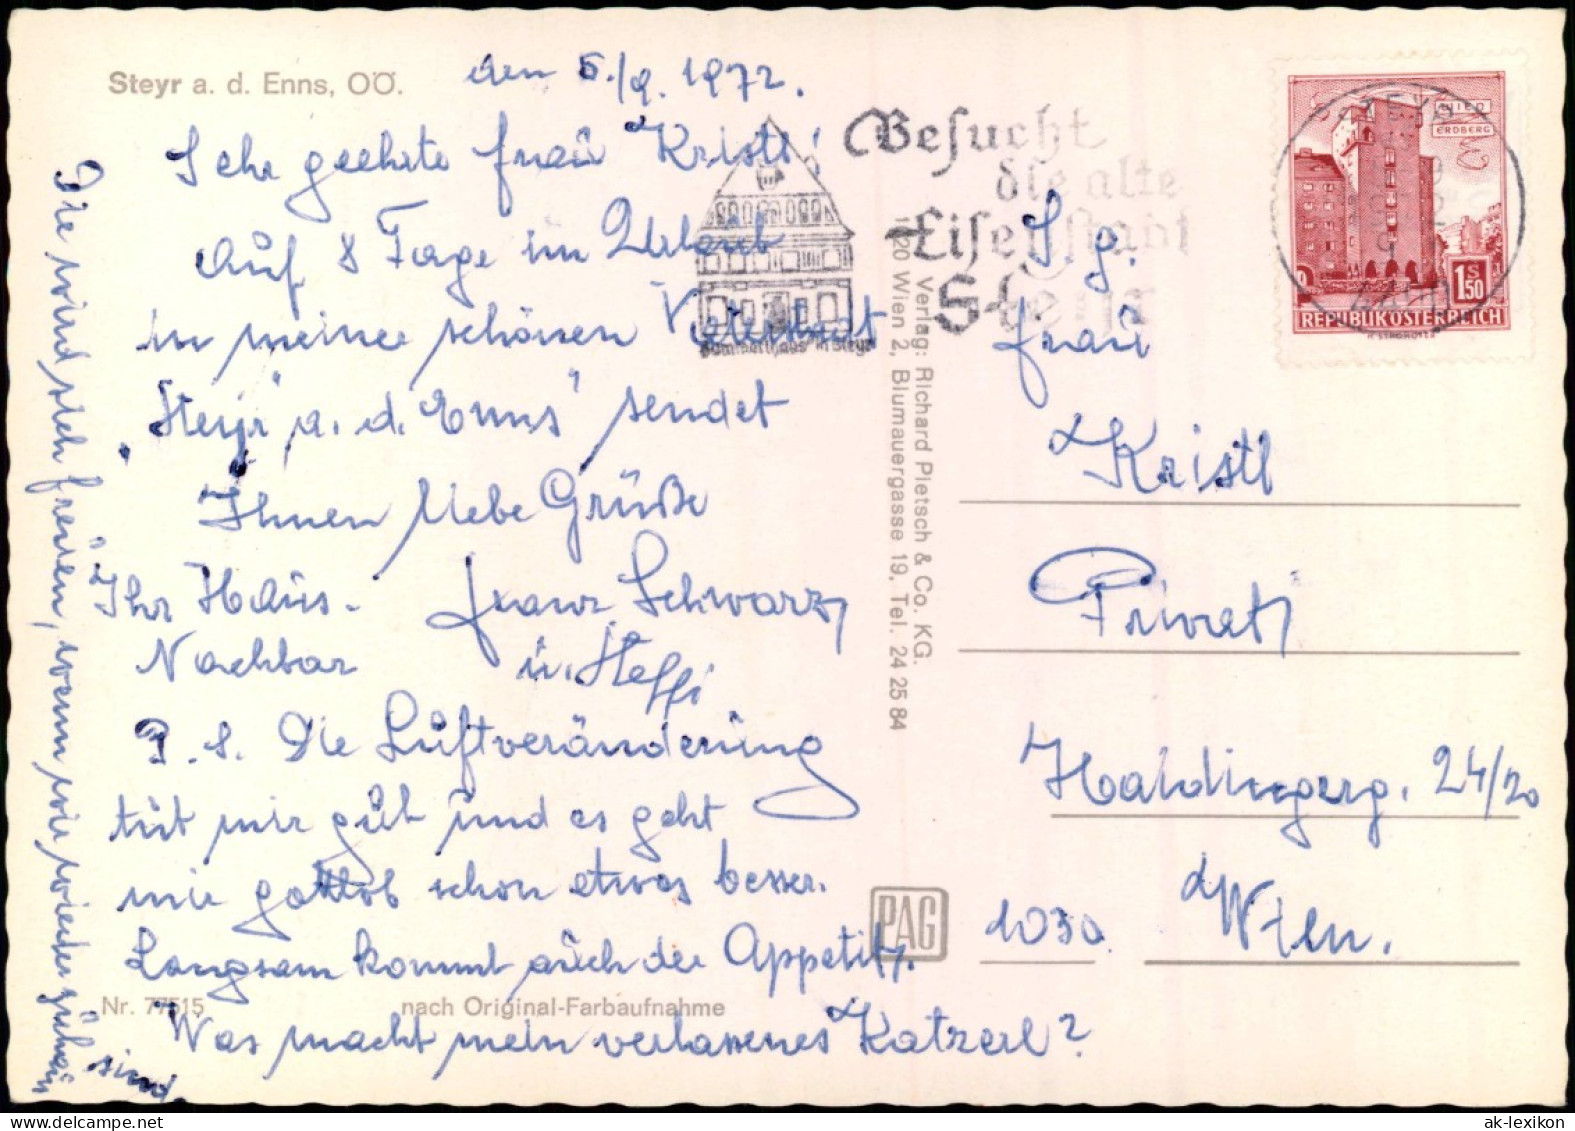 Steyr a. d. Enns, OÖ.
den 5./9. 1972.
Sehr geehrte Frau Kristl!
Auf 8 Tage im Urlaub
in meiner schönen Vaterstadt
„Steyr" a. d. Enns" sendet
Ihnen liebe Grüße
Ihr Haus-
Nachbar
Franz Schwarz
u. Steffi
P. S. Die Luftveränderung
tut mir gut und es geht
mir gottlob schon etwas besser.
Langsam kommt auch der Appetit.
Was macht mein verlassenes Katzerl?
wird sich freuen, wenn wir wieder zuhaus
sind.
Nr. 77515
nach Original-Farbaufnahme
Verlag: Richard Pietsch & Co. KG.
1020 Wien 2, Blumauergasse 19, Tel. 24 25 84
PAG
Besucht
die alte
Eisenstadt
Steyr
Bummerlhaus in Steyr
WIEN
ERDBERG
S
1.50
REPUBLIK ÖSTERREICH
STEYR
4400
S. g.
Frau
Kristl
Privat
Haidingerg. 24/20
1030
Wien.
ak-lexikon